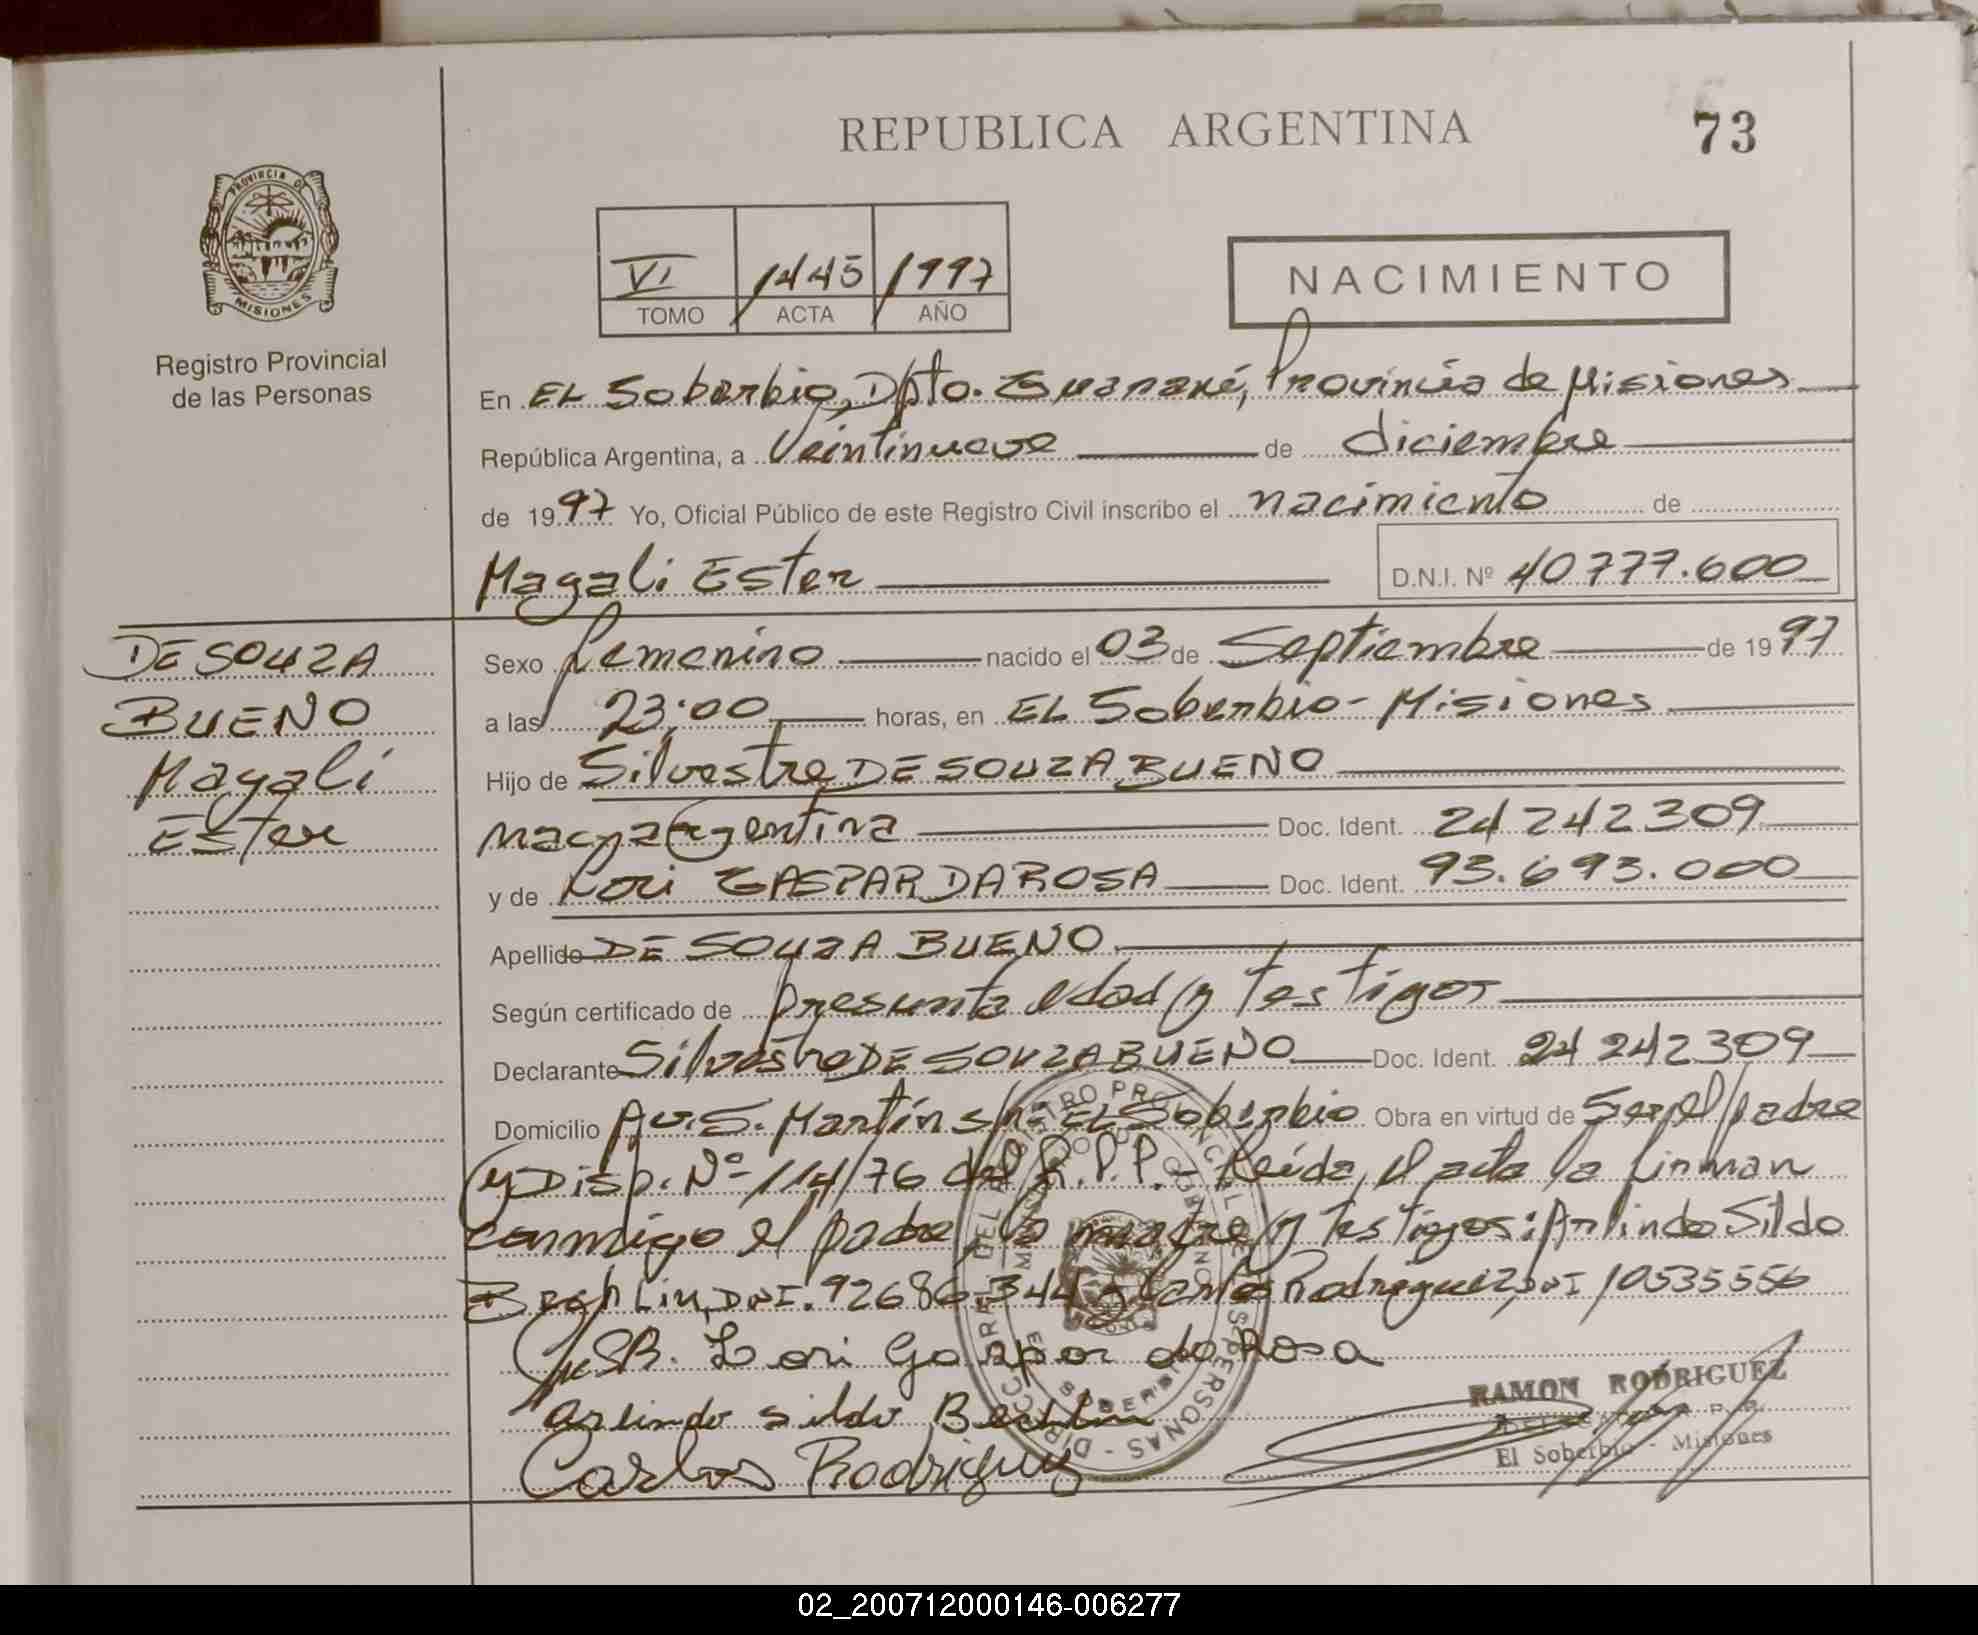 REPUBLICA ARGENTINA
73
PROVINCIA DE
MISIONES
Registro Provincial
de las Personas
VI 1445 1997
TOMO ACTA AÑO
NACIMIENTO
En EL Soberbio, Dpto. Guaraní, Provincia de Misiones
República Argentina, a Veintinueve de diciembre
de 1997 Yo, Oficial Público de este Registro Civil inscribo el nacimiento de
Magali Ester D.N.I. Nº 40777.600
DE SOUZA
BUENO
Magali
Ester
Sexo femenino nacido el 03 de Septiembre de 1997
a las 23:00 horas, en EL Soberbio - Misiones
Hijo de Silvestre DE SOUZA BUENO
Argentina Doc. Ident. 24242309
y de Lori GASPAR DA ROSA Doc. Ident. 93.693.000
Apellido DE SOUZA BUENO
Según certificado de presunta edad y testigos
Declarante Silvestre DE SOUZA BUENO Doc. Ident. 24242309
Domicilio Av. S. Martín s/n. EL Soberbio Obra en virtud de Ser el padre
y Disp. Nº 114/76 del R.P.P. - Leída el acta la firman
conmigo el padre, la madre y testigos: Arlindo Sildo
DNI. 92686344 y Carlos Rodriguez, DNI 10535556
Lori Gaspar da Rosa
Arlindo sildo
Carlos Rodriguez
RAMON RODRIGUEZ
El Soberbio - Misiones
02_200712000146-006277